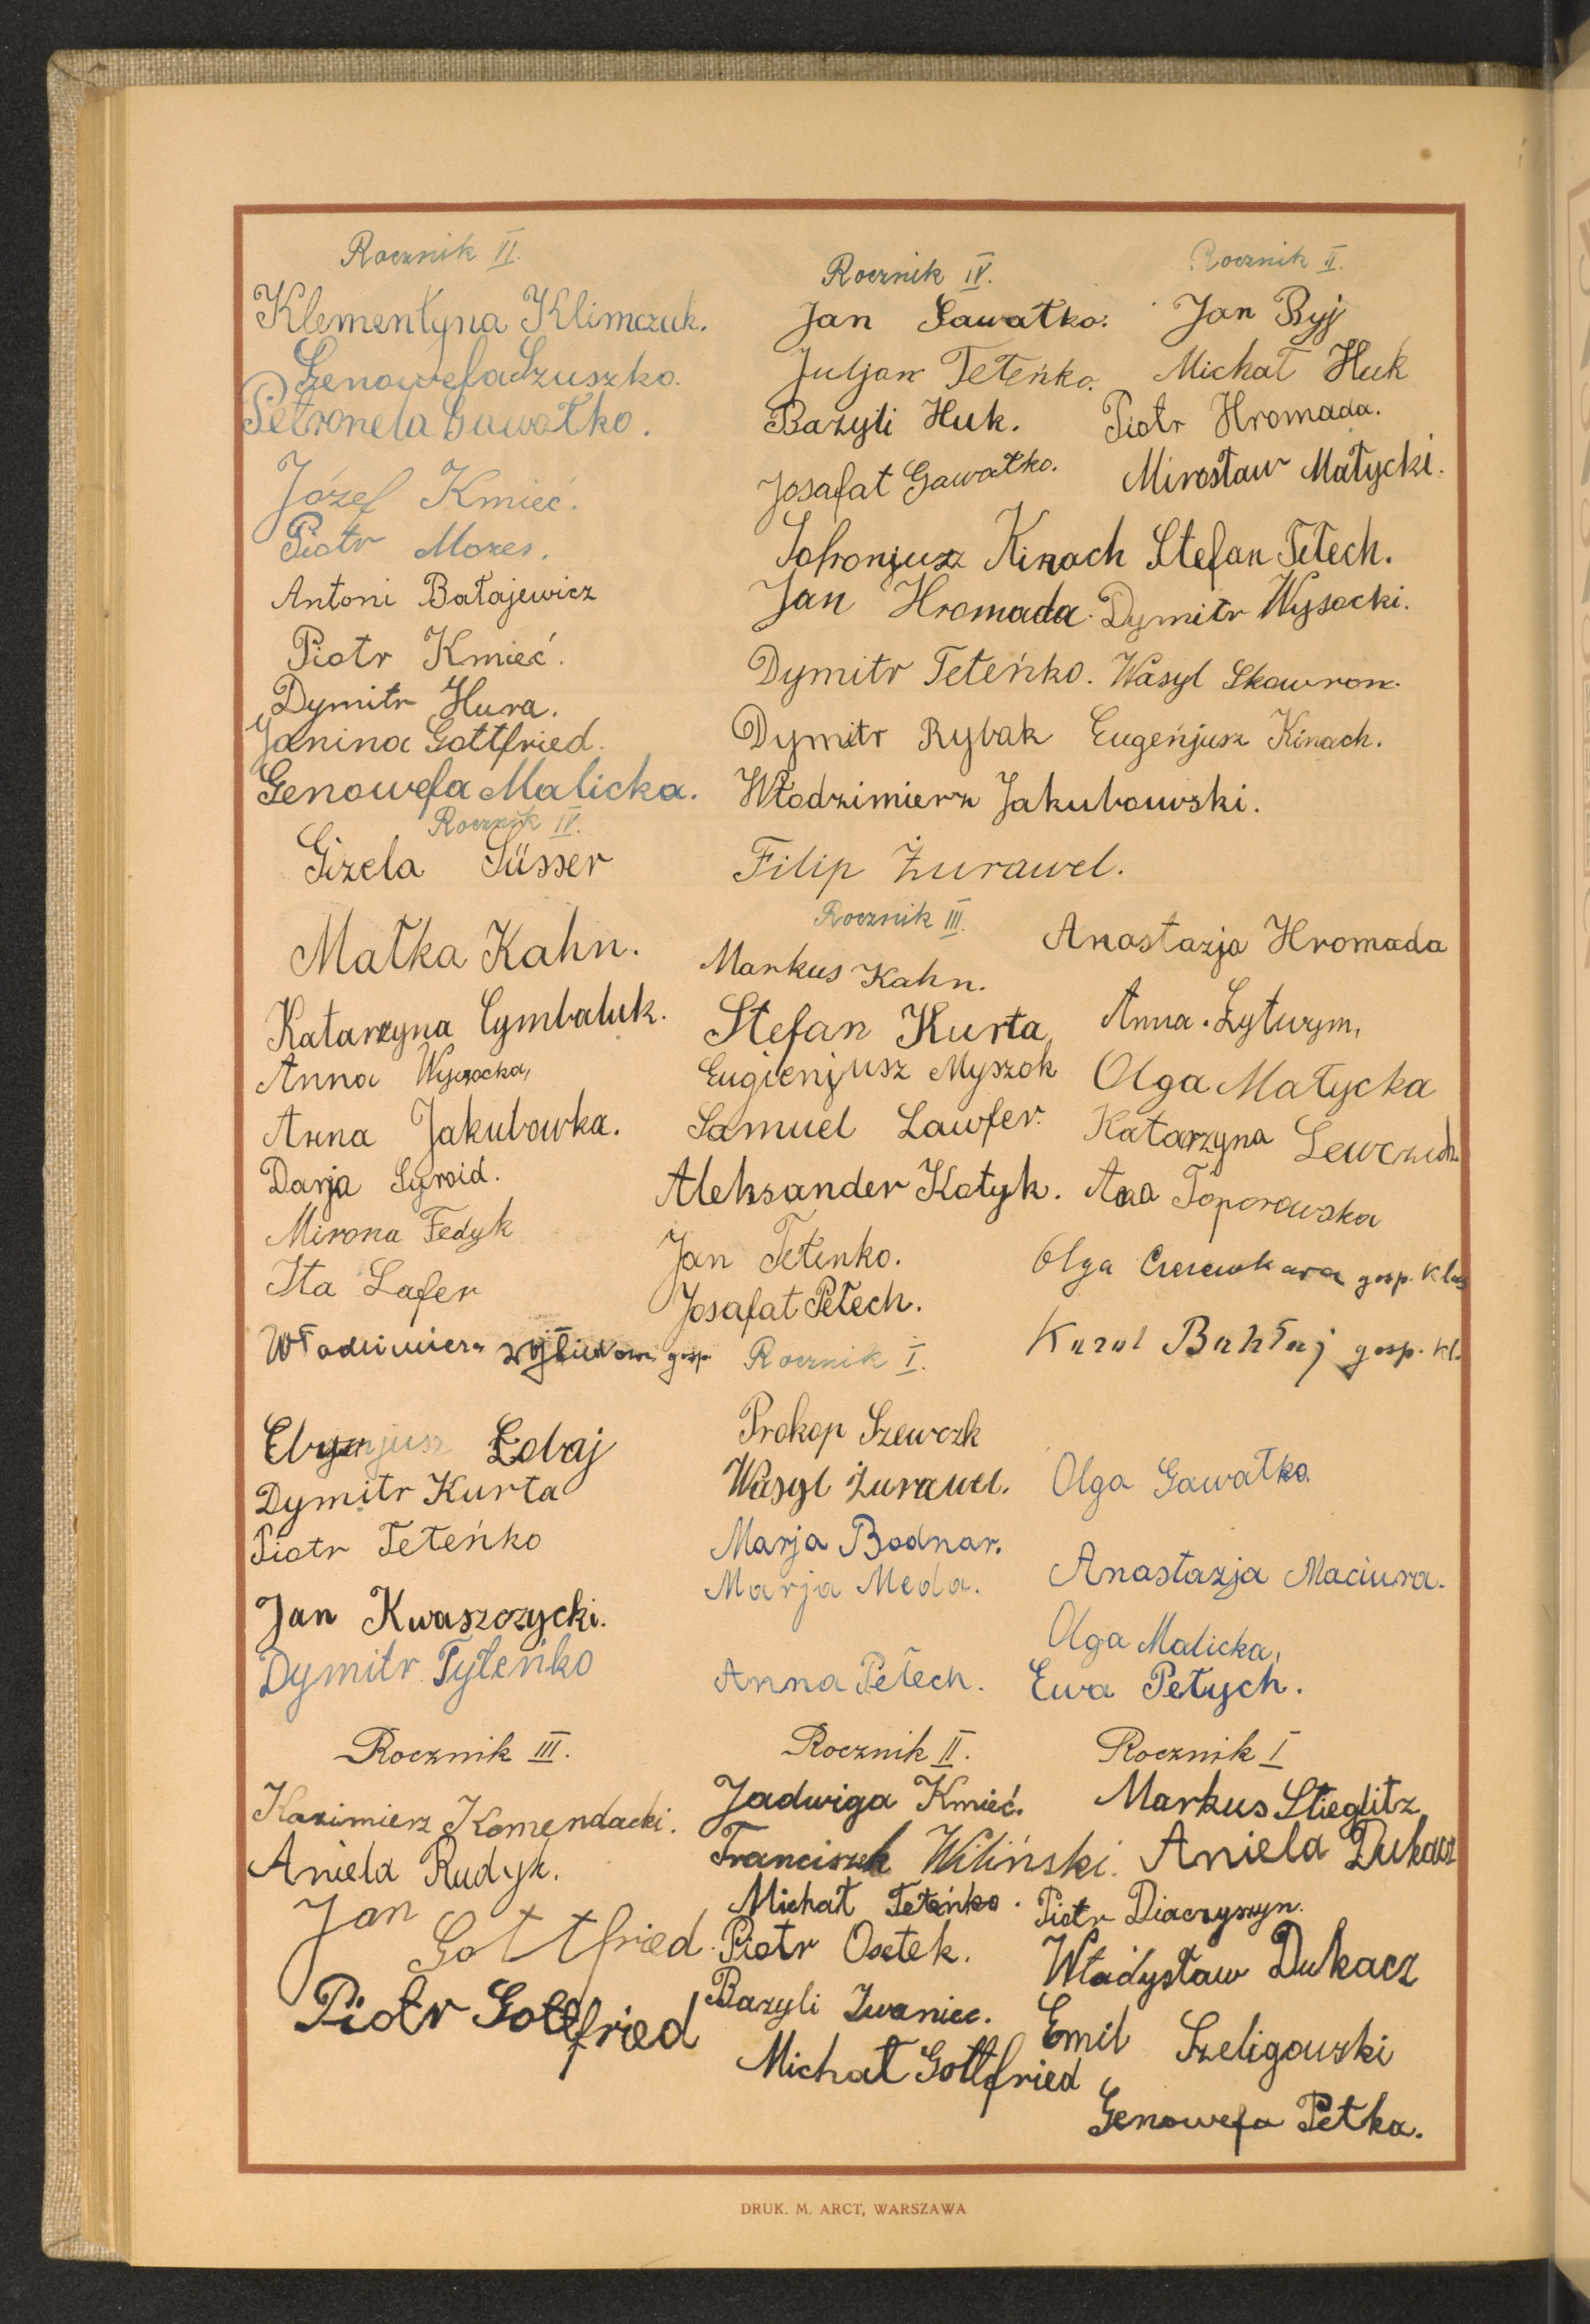 Rocznik VI.
Klementyna Klimczuk.
Genowefa Szuszko.
Petronela Gawałko.
Józef Kmieć.
Piotr Mozes.
Antoni Bałajewicz
Piotr Kmieć.
Dymitr Hura.
Janina Gottfried.
Genowefa Malicka.
Rocznik IV.
Gizela Süsser
Małka Kahn.
Katarzyna Cymbaluk.
Anna Wysocka,
Anna Jakubowka.
Darja Syroid.
Mirona Fedyk
Ita Lafer
Włodzimierz gosp.
Łobaj
Dymitr Kurta
Piotr Teteńko
Jan Kwaszczycki.
Dymitr Tyteńko
Rocznik III.
Kazimierz Komendacki.
Aniela Rudyk.
Jan Gottfried.
Piotr Gottfried
Rocznik IV.
Jan Sawałko.
Juljan Teteńko.
Bazyli Huk.
Josafat Gawałko.
Sofronjusz Kinach
Jan Hromada.
Dymitr Teteńko.
Dymitr Rybak
Włodzimierz Jakubowski.
Filip Żurawel.
Rocznik III.
Markus Kahn.
Stefan Kurta
Eugienjusz Myszok
Samuel Lawfer.
Aleksander Kotyk.
Jan Tetenko.
Josafat Petech.
Rocznik I.
Prokop Szewczk
Wasyl Żurawel.
Marja Bodnar.
Marja Meda.
Anna Petech.
Rocznik II.
Jadwiga Kmieć.
Franciszek Wiliński.
Michał Teteńko.
Piotr Osetek.
Bazyli Iwaniec.
Michał Gottfried
Rocznik II.
Jan Byj
Michał Huk
Piotr Hromada.
Mirosław Małycki.
Stefan Tetech.
Dymitr Wysocki.
Wasyl Skowron.
Eugenjusz Kinach.
Anastazja Hromada
Anna Zytwym,
Olga Małycka
Katarzyna Lewczuk
Ana Toporowska
Olga gosp. klas
Karol Bahłaj gosp. kl.
Olga Gawałko.
Anastazja Maciura.
Olga Malicka,
Ewa Petych.
Rocznik I
Markus Stieglitz
Aniela Dukacz
Piotr Diaczyszyn.
Władysław Dukacz
Emil Szeligowski
Genowefa Petka.
DRUK. M. ARCT, WARSZAWA